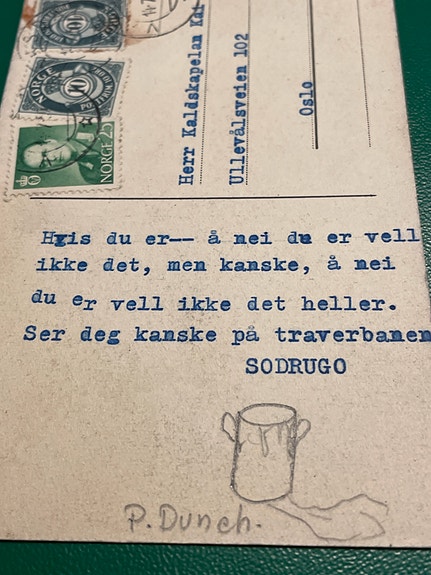 10
NORGE
10
NORGE 25
Herr Kaldskapelan
Ullevålsveien 102
Oslo
Hvis du er-- å nei du er vell
ikke det, men kanske, å nei
du er vell ikke det heller.
Ser deg kanske på traverbanen
SODRUGO
P. Dunch.